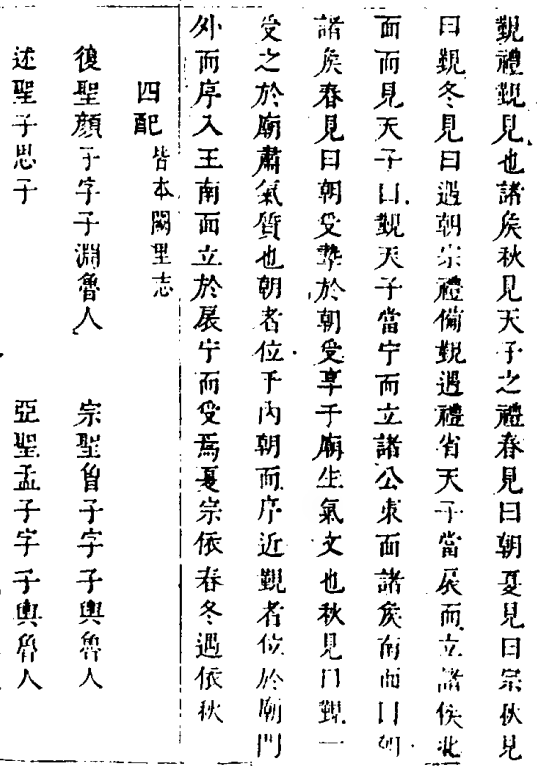 覲禮覲見也諸侯秋見天子之禮春見曰朝夏見曰宗秋見
曰覲冬見曰遇朝宗禮備覲遇禮省天子當扆而立諸侯北
面而見天子曰覲天子當宁而立諸公東面諸侯西面曰朝
諸侯春見曰朝受摯於朝受享于廟生氣文也秋見曰覲一
受之於廟肅氣質也朝者位于內朝而序近覲者位於廟門
外而序入王南面立於扆宁而受焉夏宗依春冬遇依秋
四配皆本闕里志
復聖顏子字子淵魯人 宗聖曾子字子輿魯人
述聖子思子 亞聖孟子字子輿魯人